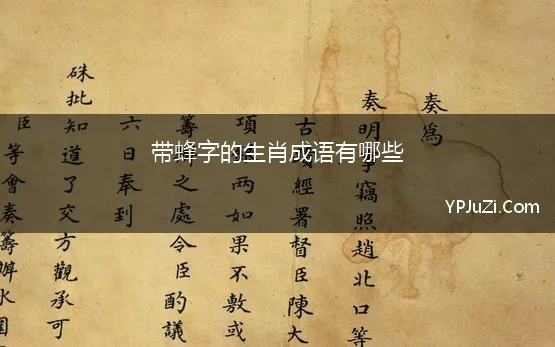 带蜂字的生肖成语有哪些
YPJuZi.Com
奏為
奏明事竊照趙北口等
經署督臣陳大
項 两如果不敷或
籌 之處令臣酌議
六日奉到
硃批知道了交方觀承可
臣等會奏籌辦水圍